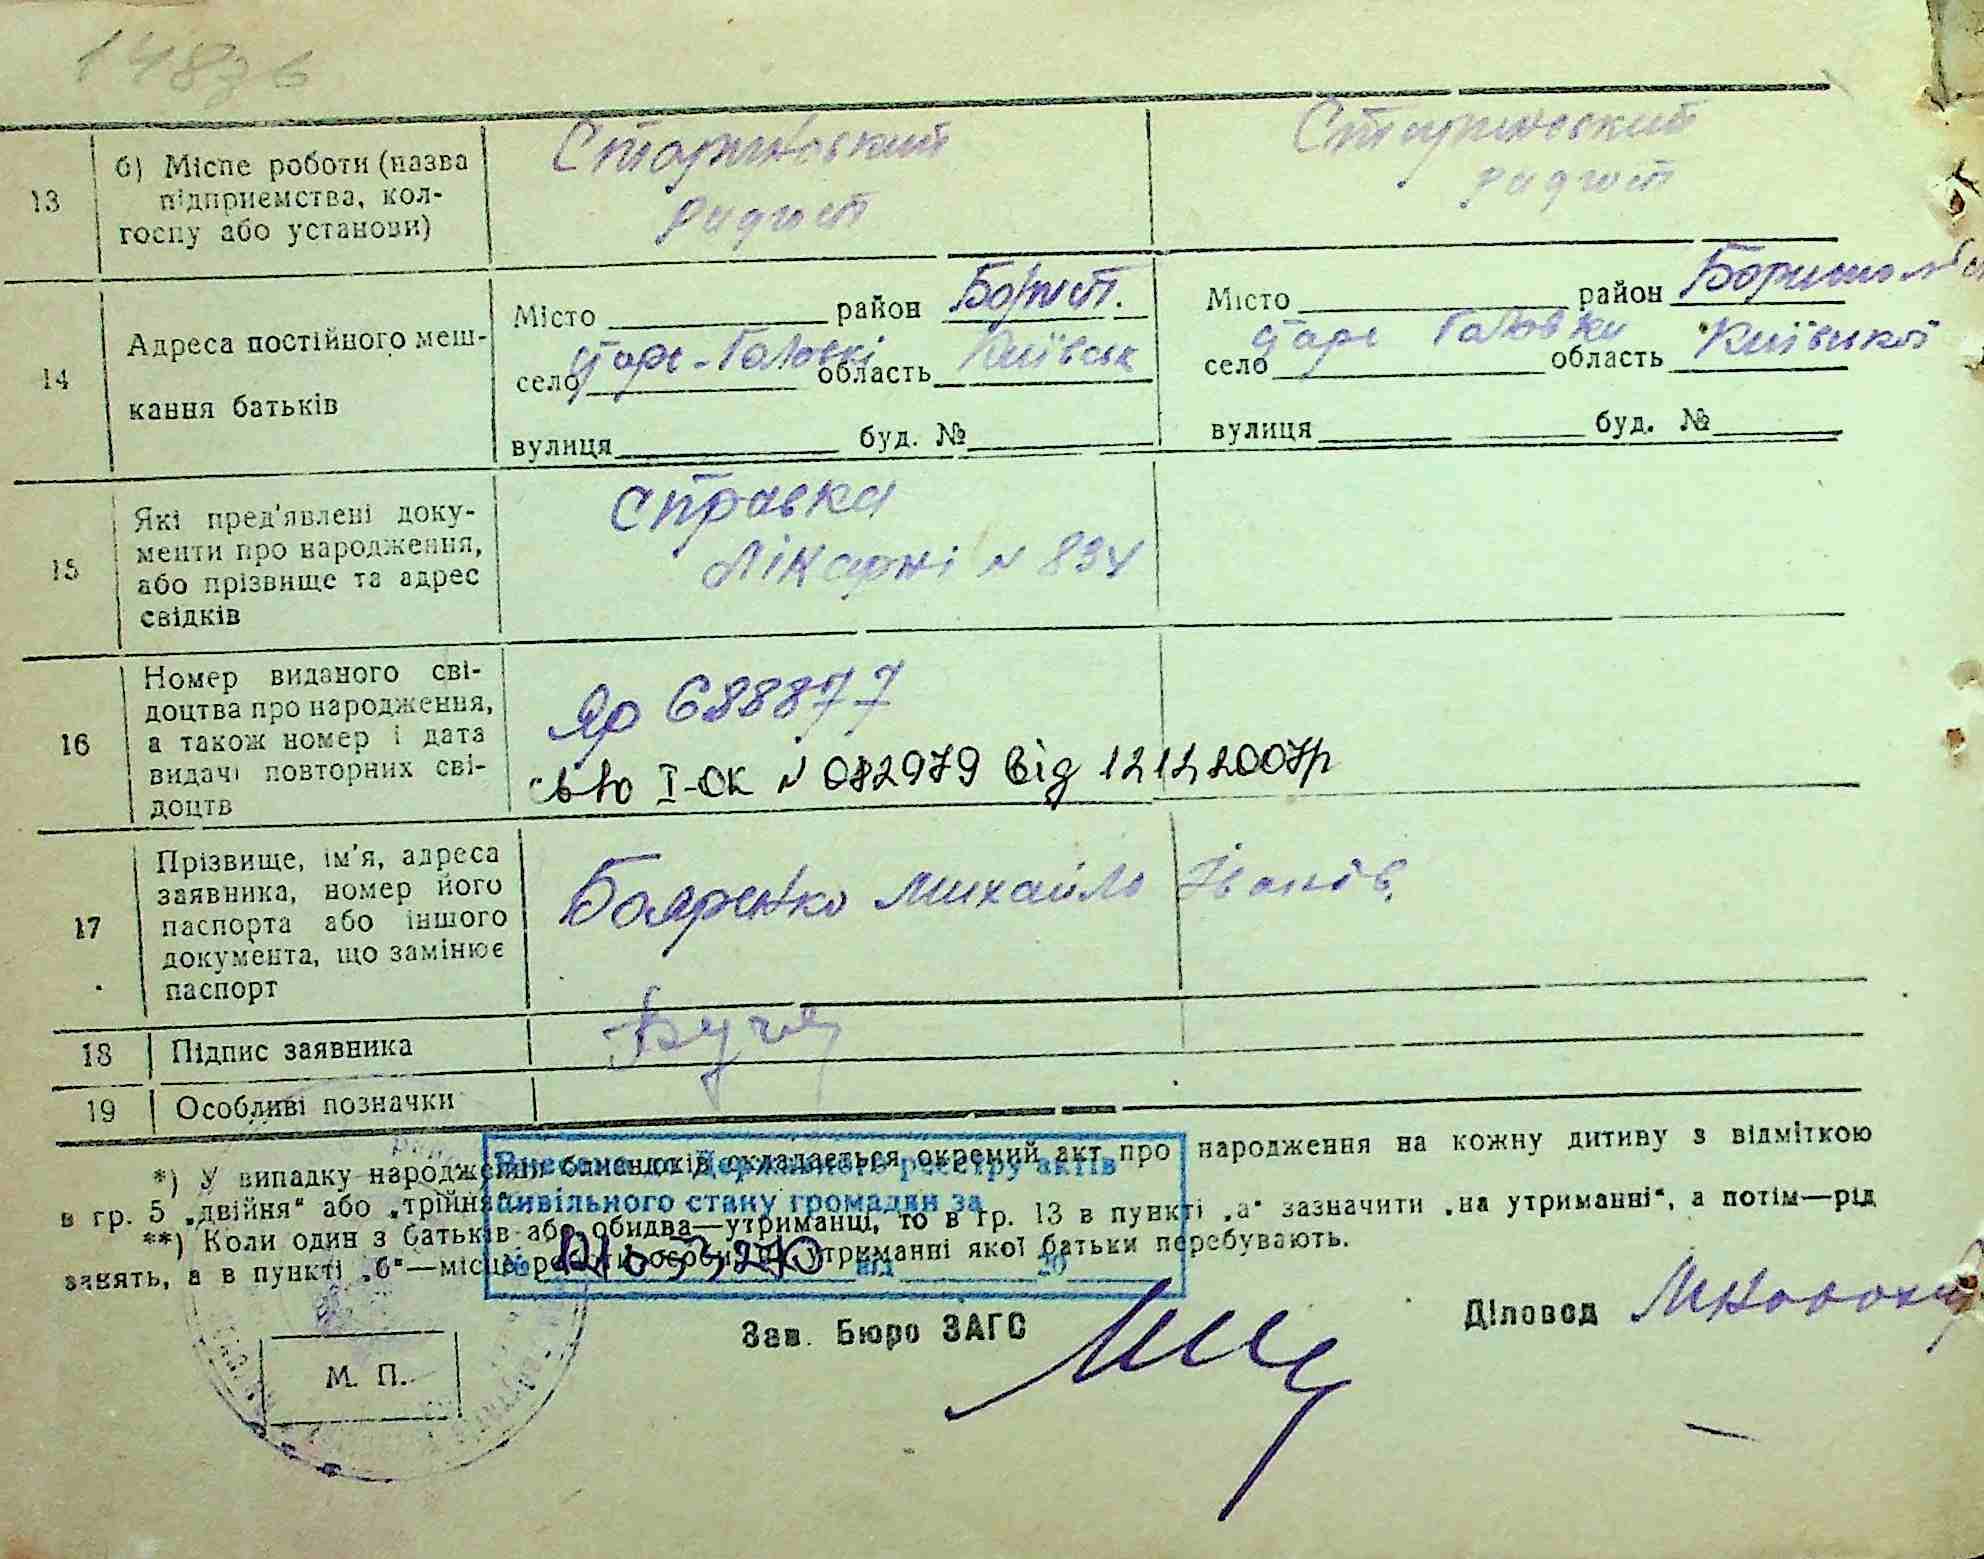 14876
13
б) Місце роботи (назва
підприємства, кол-
госпу або установи)
Старинський
радгосп
Старинський
радгосп
14
Адреса постійного меш-
кання батьків
Місто район Борисп.
село область Київськ
вулиця буд. №
Місто район
село область Київської
вулиця буд. №
15
Які пред'явлені доку-
менти про народження,
або прізвище та адрес
свідків
Справка
лікарні № 834
16
Номер виданого сві-
доцтва про народження,
а також номер і дата
видачі повторних сві-
доцтв
ЯР 688877
св-во І-ОК № 082979 від 12 12 2007р
17
Прізвище, ім'я, адреса
заявника, номер його
паспорта або іншого
документа, що замінює
паспорт
Бояренко Михайло Іванов.
18
Підпис заявника
19
Особливі позначки
*) У випадку народження близнюків складається окремий акт про народження на кожну дитину з відміткою
в гр. 5 „двійня“ або „трійня“.
**) Коли один з батьків або обидва—утриманці, то в гр. 13 в пункті „а“ зазначити „на утриманні“, а потім—рід
занять, а в пункті „б“—місце роботи особи, на утриманні якої батьки перебувають.
Внесено до Державного реєстру актів
цивільного стану громадян за
№ від 20
Зав. Бюро ЗАГС
Діловод
М. П.